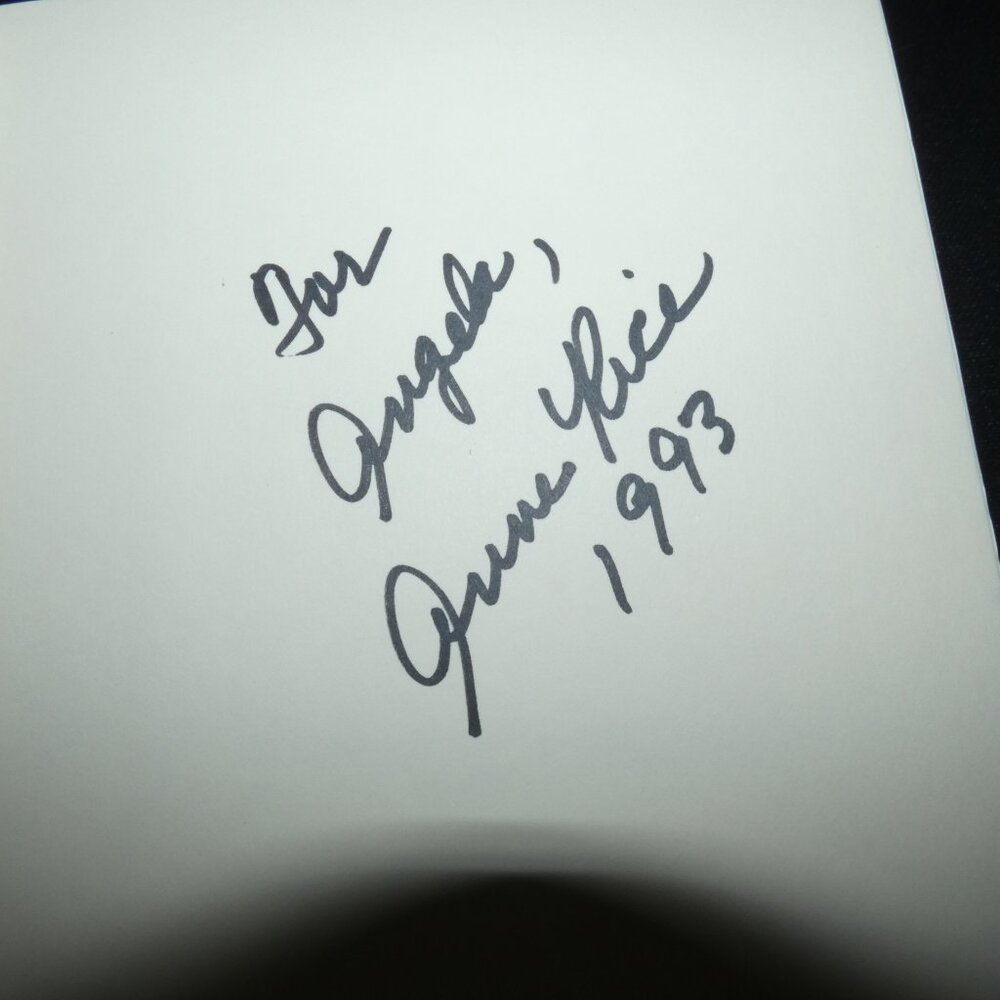 For
Angela,
Anne Rice
1993